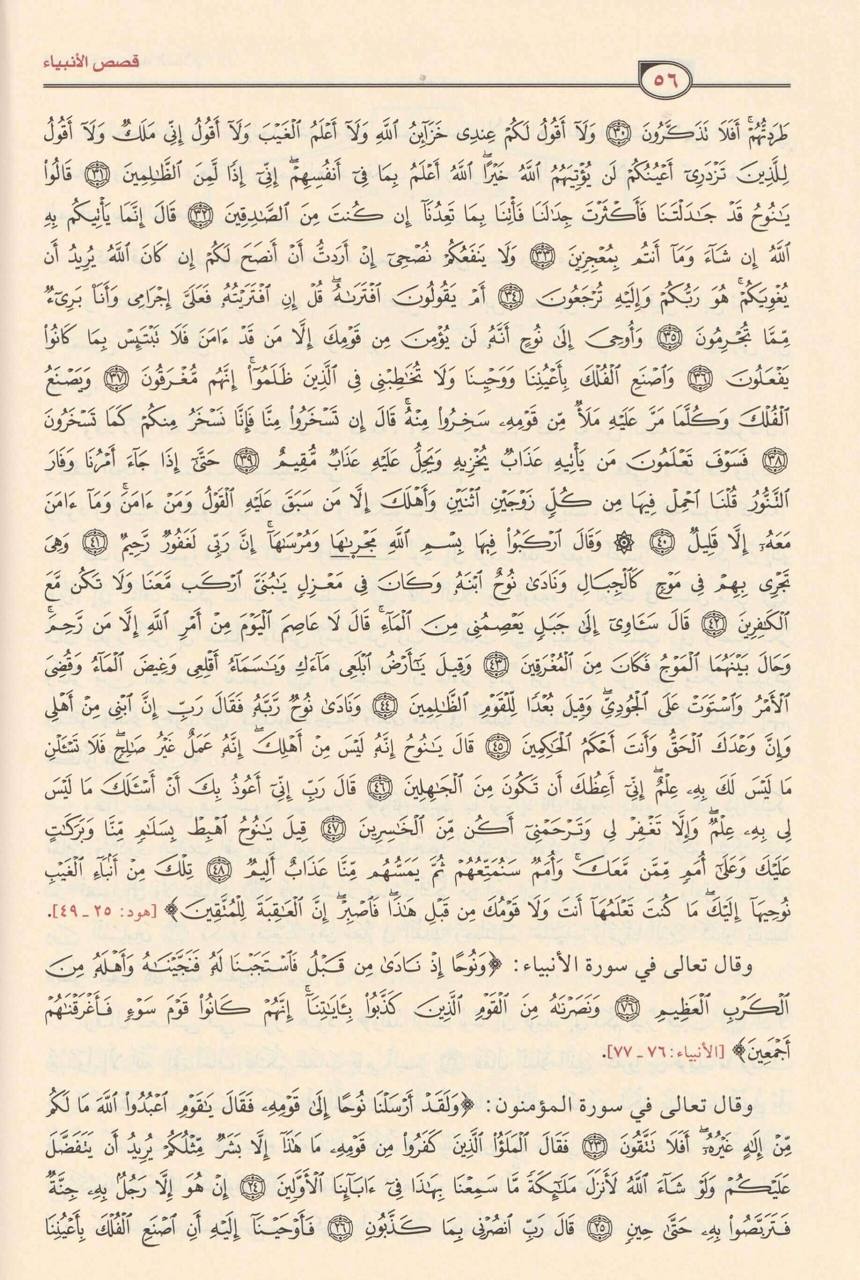 قصص الأنبياء
٥٦
طَرَدتُّهُمْ ۚ أَفَلَا تَذَكَّرُونَ ﴿٣٠﴾ وَلَآ أَقُولُ لَكُمْ عِندِى خَزَآئِنُ ٱللَّهِ وَلَآ أَعْلَمُ ٱلْغَيْبَ وَلَآ أَقُولُ إِنِّى مَلَكٌ وَلَآ أَقُولُ
لِلَّذِينَ تَزْدَرِىٓ أَعْيُنُكُمْ لَن يُؤْتِيَهُمُ ٱللَّهُ خَيْرًا ۖ ٱللَّهُ أَعْلَمُ بِمَا فِىٓ أَنفُسِهِمْ ۖ إِنِّىٓ إِذًا لَّمِنَ ٱلظَّٰلِمِينَ ﴿٣١﴾ قَالُوا۟
يَٰنُوحُ قَدْ جَٰدَلْتَنَا فَأَكْثَرْتَ جِدَٰلَنَا فَأْتِنَا بِمَا تَعِدُنَآ إِن كُنتَ مِنَ ٱلصَّٰدِقِينَ ﴿٣٢﴾ قَالَ إِنَّمَا يَأْتِيكُم بِهِ
ٱللَّهُ إِن شَآءَ وَمَآ أَنتُم بِمُعْجِزِينَ ﴿٣٣﴾ وَلَا يَنفَعُكُمْ نُصْحِىٓ إِنْ أَرَدتُّ أَنْ أَنصَحَ لَكُمْ إِن كَانَ ٱللَّهُ يُرِيدُ أَن
يُغْوِيَكُمْ ۚ هُوَ رَبُّكُمْ وَإِلَيْهِ تُرْجَعُونَ ﴿٣٤﴾ أَمْ يَقُولُونَ ٱفْتَرَىٰهُ ۖ قُلْ إِنِ ٱفْتَرَيْتُهُۥ فَعَلَىَّ إِجْرَامِى وَأَنَا۠ بَرِىٓءٌ
مِّمَّا تُجْرِمُونَ ﴿٣٥﴾ وَأُوحِىَ إِلَىٰ نُوحٍ أَنَّهُۥ لَن يُؤْمِنَ مِن قَوْمِكَ إِلَّا مَن قَدْ ءَامَنَ فَلَا تَبْتَئِسْ بِمَا كَانُوا۟
يَفْعَلُونَ ﴿٣٦﴾ وَٱصْنَعِ ٱلْفُلْكَ بِأَعْيُنِنَا وَوَحْيِنَا وَلَا تُخَٰطِبْنِى فِى ٱلَّذِينَ ظَلَمُوٓا۟ ۚ إِنَّهُم مُّغْرَقُونَ ﴿٣٧﴾ وَيَصْنَعُ
ٱلْفُلْكَ وَكُلَّمَا مَرَّ عَلَيْهِ مَلَأٌ مِّن قَوْمِهِۦ سَخِرُوا۟ مِنْهُ ۚ قَالَ إِن تَسْخَرُوا۟ مِنَّا فَإِنَّا نَسْخَرُ مِنكُمْ كَمَا تَسْخَرُونَ
﴿٣٨﴾ فَسَوْفَ تَعْلَمُونَ مَن يَأْتِيهِ عَذَابٌ يُخْزِيهِ وَيَحِلُّ عَلَيْهِ عَذَابٌ مُّقِيمٌ ﴿٣٩﴾ حَتَّىٰٓ إِذَا جَآءَ أَمْرُنَا وَفَارَ
ٱلتَّنُّورُ قُلْنَا ٱحْمِلْ فِيهَا مِن كُلٍّ زَوْجَيْنِ ٱثْنَيْنِ وَأَهْلَكَ إِلَّا مَن سَبَقَ عَلَيْهِ ٱلْقَوْلُ وَمَنْ ءَامَنَ ۚ وَمَآ ءَامَنَ
مَعَهُۥٓ إِلَّا قَلِيلٌ ﴿٤٠﴾ ۞ وَقَالَ ٱرْكَبُوا۟ فِيهَا بِسْمِ ٱللَّهِ مَجْر۪ىٰهَا وَمُرْسَىٰهَآ ۚ إِنَّ رَبِّى لَغَفُورٌ رَّحِيمٌ ﴿٤١﴾ وَهِىَ
تَجْرِى بِهِمْ فِى مَوْجٍ كَٱلْجِبَالِ وَنَادَىٰ نُوحٌ ٱبْنَهُۥ وَكَانَ فِى مَعْزِلٍ يَٰبُنَىَّ ٱرْكَب مَّعَنَا وَلَا تَكُن مَّعَ
ٱلْكَٰفِرِينَ ﴿٤٢﴾ قَالَ سَـَٔاوِىٓ إِلَىٰ جَبَلٍ يَعْصِمُنِى مِنَ ٱلْمَآءِ ۚ قَالَ لَا عَاصِمَ ٱلْيَوْمَ مِنْ أَمْرِ ٱللَّهِ إِلَّا مَن رَّحِمَ ۚ
وَحَالَ بَيْنَهُمَا ٱلْمَوْجُ فَكَانَ مِنَ ٱلْمُغْرَقِينَ ﴿٤٣﴾ وَقِيلَ يَٰٓأَرْضُ ٱبْلَعِى مَآءَكِ وَيَٰسَمَآءُ أَقْلِعِى وَغِيضَ ٱلْمَآءُ وَقُضِىَ
ٱلْأَمْرُ وَٱسْتَوَتْ عَلَى ٱلْجُودِىِّ ۖ وَقِيلَ بُعْدًا لِّلْقَوْمِ ٱلظَّٰلِمِينَ ﴿٤٤﴾ وَنَادَىٰ نُوحٌ رَّبَّهُۥ فَقَالَ رَبِّ إِنَّ ٱبْنِى مِنْ أَهْلِى
وَإِنَّ وَعْدَكَ ٱلْحَقُّ وَأَنتَ أَحْكَمُ ٱلْحَٰكِمِينَ ﴿٤٥﴾ قَالَ يَٰنُوحُ إِنَّهُۥ لَيْسَ مِنْ أَهْلِكَ ۖ إِنَّهُۥ عَمَلٌ غَيْرُ صَٰلِحٍ ۖ فَلَا تَسْـَٔلْنِ
مَا لَيْسَ لَكَ بِهِۦ عِلْمٌ ۖ إِنِّىٓ أَعِظُكَ أَن تَكُونَ مِنَ ٱلْجَٰهِلِينَ ﴿٤٦﴾ قَالَ رَبِّ إِنِّىٓ أَعُوذُ بِكَ أَنْ أَسْـَٔلَكَ مَا لَيْسَ
لِى بِهِۦ عِلْمٌ ۖ وَإِلَّا تَغْفِرْ لِى وَتَرْحَمْنِىٓ أَكُن مِّنَ ٱلْخَٰسِرِينَ ﴿٤٧﴾ قِيلَ يَٰنُوحُ ٱهْبِطْ بِسَلَٰمٍ مِّنَّا وَبَرَكَٰتٍ
عَلَيْكَ وَعَلَىٰٓ أُمَمٍ مِّمَّن مَّعَكَ ۚ وَأُمَمٌ سَنُمَتِّعُهُمْ ثُمَّ يَمَسُّهُم مِّنَّا عَذَابٌ أَلِيمٌ ﴿٤٨﴾ تِلْكَ مِنْ أَنۢبَآءِ ٱلْغَيْبِ
نُوحِيهَآ إِلَيْكَ ۖ مَا كُنتَ تَعْلَمُهَآ أَنتَ وَلَا قَوْمُكَ مِن قَبْلِ هَٰذَا ۖ فَٱصْبِرْ ۖ إِنَّ ٱلْعَٰقِبَةَ لِلْمُتَّقِينَ﴾ [هود: ٢٥ ـ ٤٩].
وقال تعالى في سورة الأنبياء: ﴿وَنُوحًا إِذْ نَادَىٰ مِن قَبْلُ فَٱسْتَجَبْنَا لَهُۥ فَنَجَّيْنَٰهُ وَأَهْلَهُۥ مِنَ
ٱلْكَرْبِ ٱلْعَظِيمِ ﴿٧٦﴾ وَنَصَرْنَٰهُ مِنَ ٱلْقَوْمِ ٱلَّذِينَ كَذَّبُوا۟ بِـَٔايَٰتِنَآ ۚ إِنَّهُمْ كَانُوا۟ قَوْمَ سَوْءٍ فَأَغْرَقْنَٰهُمْ
أَجْمَعِينَ﴾ [الأنبياء: ٧٦ ـ ٧٧].
وقال تعالى في سورة المؤمنون: ﴿وَلَقَدْ أَرْسَلْنَا نُوحًا إِلَىٰ قَوْمِهِۦ فَقَالَ يَٰقَوْمِ ٱعْبُدُوا۟ ٱللَّهَ مَا لَكُم
مِّنْ إِلَٰهٍ غَيْرُهُۥٓ ۖ أَفَلَا تَتَّقُونَ ﴿٢٣﴾ فَقَالَ ٱلْمَلَؤُا۟ ٱلَّذِينَ كَفَرُوا۟ مِن قَوْمِهِۦ مَا هَٰذَآ إِلَّا بَشَرٌ مِّثْلُكُمْ يُرِيدُ أَن يَتَفَضَّلَ
عَلَيْكُمْ وَلَوْ شَآءَ ٱللَّهُ لَأَنزَلَ مَلَٰٓئِكَةً مَّا سَمِعْنَا بِهَٰذَا فِىٓ ءَابَآئِنَا ٱلْأَوَّلِينَ ﴿٢٤﴾ إِنْ هُوَ إِلَّا رَجُلٌۢ بِهِۦ جِنَّةٌ
فَتَرَبَّصُوا۟ بِهِۦ حَتَّىٰ حِينٍ ﴿٢٥﴾ قَالَ رَبِّ ٱنصُرْنِى بِمَا كَذَّبُونِ ﴿٢٦﴾ فَأَوْحَيْنَآ إِلَيْهِ أَنِ ٱصْنَعِ ٱلْفُلْكَ بِأَعْيُنِنَا